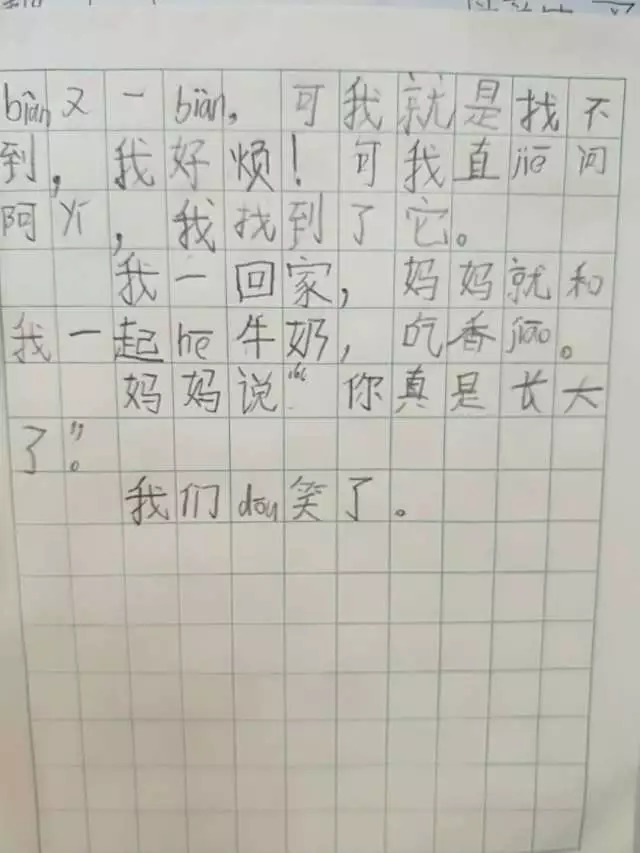 biàn又一biàn，可我就是找不
到，我好烦！可我直jiē问
阿yí，我找到了它。
我一回家，妈妈就和
我一起hē牛奶，吃香jiāo。
妈妈说“你真是长大
了”。
我们dōu笑了。